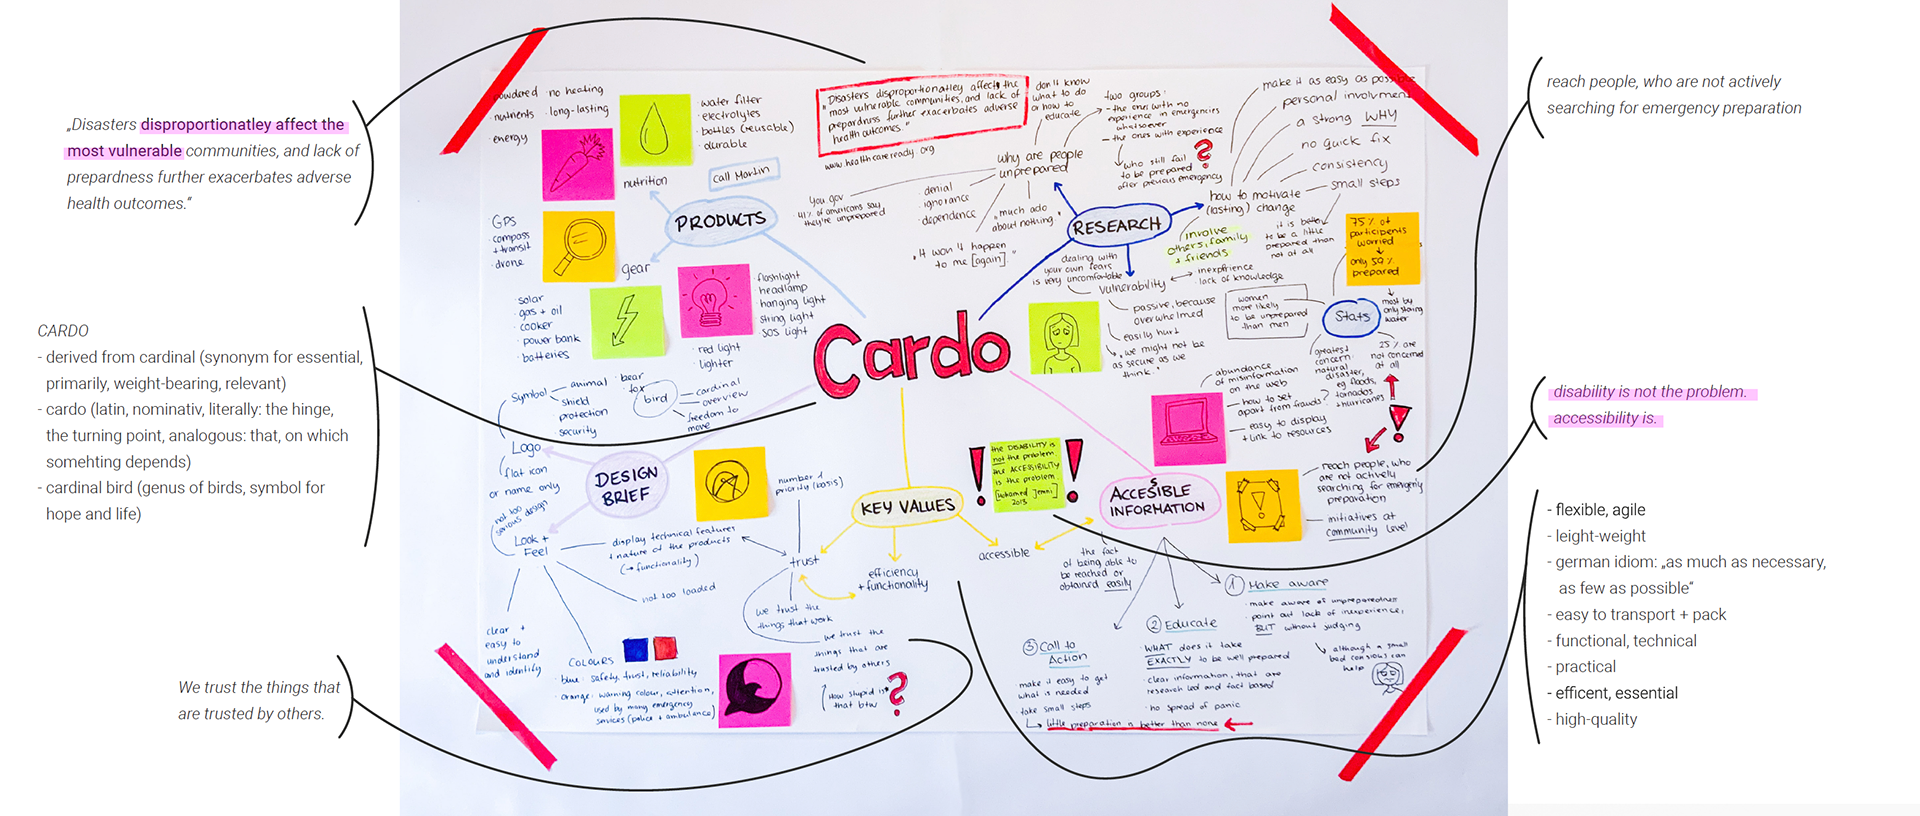 „Disasters disproportionatley affect the
most vulnerable communities, and lack of
prepardness further exacerbates adverse
health outcomes.“
CARDO
- derived from cardinal (synonym for essential,
primarily, weight-bearing, relevant)
- cardo (latin, nominativ, literally: the hinge,
the turning point, analogous: that, on which
somehting depends)
- cardinal bird (genus of birds, symbol for
hope and life)
We trust the things that
are trusted by others.
powdered
nutrients
energy
no heating
· long-lasting
water filter
· electrolytes
· bottles (reusable)
· durable
nutrition
call Martin
PRODUCTS
· GPS
· compass
+ transit
· drone
gear
· solar
· gas + oil
· cooker
· power bank
· batteries
· flashlight
· headlamp
· hanging light
· string light
· SOS light
· red light
· lighter
„Disasters disproportionatley affects the
most vulnerable communities, and lack of
prepardness further exacerbates adverse
health outcomes.“
www.healthcareready.org
don't know
what to do
or how to
educate
two groups:
- the ones with no
experience in emergencies
whatsoever
- the ones with experience
who still fail
to be prepared
after previous emergency
?
why are people
unprepared
You gov
41% of americans say
they're unprepared
· denial
· ignorance
· dependence
„much ado
about nothing“
„It won't happen
to me [again]."
RESEARCH
make it as easy as possible
personal involvment
a strong WHY
no quick fix
consistency
small steps
how to motivate
(lasting) change
it is better
to be a little
prepared than
not at all
involve
others, family
+ friends
75% of
participants
worried
only 50%
prepared
dealing with
your own fears
is very uncomfortable
vulnerability
inexpfrience
lack of knowledge
passive, because
overwhelmed
easily hurt
„we might not be
as secure as we
think."
women
more likely
to be unprepared
than men
Stats
most by
only storing
water
greatest
concern:
natural
disaster,
eg floods,
tornados
+ hurricanes
25% are
not concerned
at all
Cardo
Symbol
animal
shield
protection
security
· bear
· fox
bird
cardinal
overview
freedom to
move
Logo
flat icon
or name only
not too
serious design
Look +
Feel
DESIGN
BRIEF
display technical features
+ nature of the products
(→ functionality)
not too loaded
clear +
easy to
understand
and identify
COLOURS
blue: safety, trust, reliability
orange: warning colour, attention,
used by many emergency
services (police + ambulance)
number 1
priority (basis)
KEY VALUES
trust
efficiency
+ functionality
accessible
we trust the
things that work
we trust the
things that are
trusted by others
How stupid is
that btw
?
! the DISABILITY is
not the problem
the ACCESSIBILITY
is the problem
2013 !
ACCESIBLE
INFORMATION
S
abundance
of misinformation
on the web
how to set
apart from frauds?
easy to display
+ link to resources
!
reach people, who
are not actively
searching for emergency
preparation
initiatives at
community level
the fact
of being able to
be reached or
obtained easily
① Make aware
· make aware of unpreparedness
· point out lack of inexperience,
BUT without judging
although a small
bad conscious can
help
② Educate
· WHAT does it take
EXACTLY to be well prepared
· clear information, that are
research led and fact based
· no spread of panic
③ Call to
Action
· make it easy to get
what is needed
· take small steps
little preparation is better than none
reach people, who are not actively
searching for emergency preparation
disability is not the problem.
accessibility is.
- flexible, agile
- leight-weight
- german idiom: „as much as necessary,
as few as possible“
- easy to transport + pack
- functional, technical
- practical
- efficent, essential
- high-quality